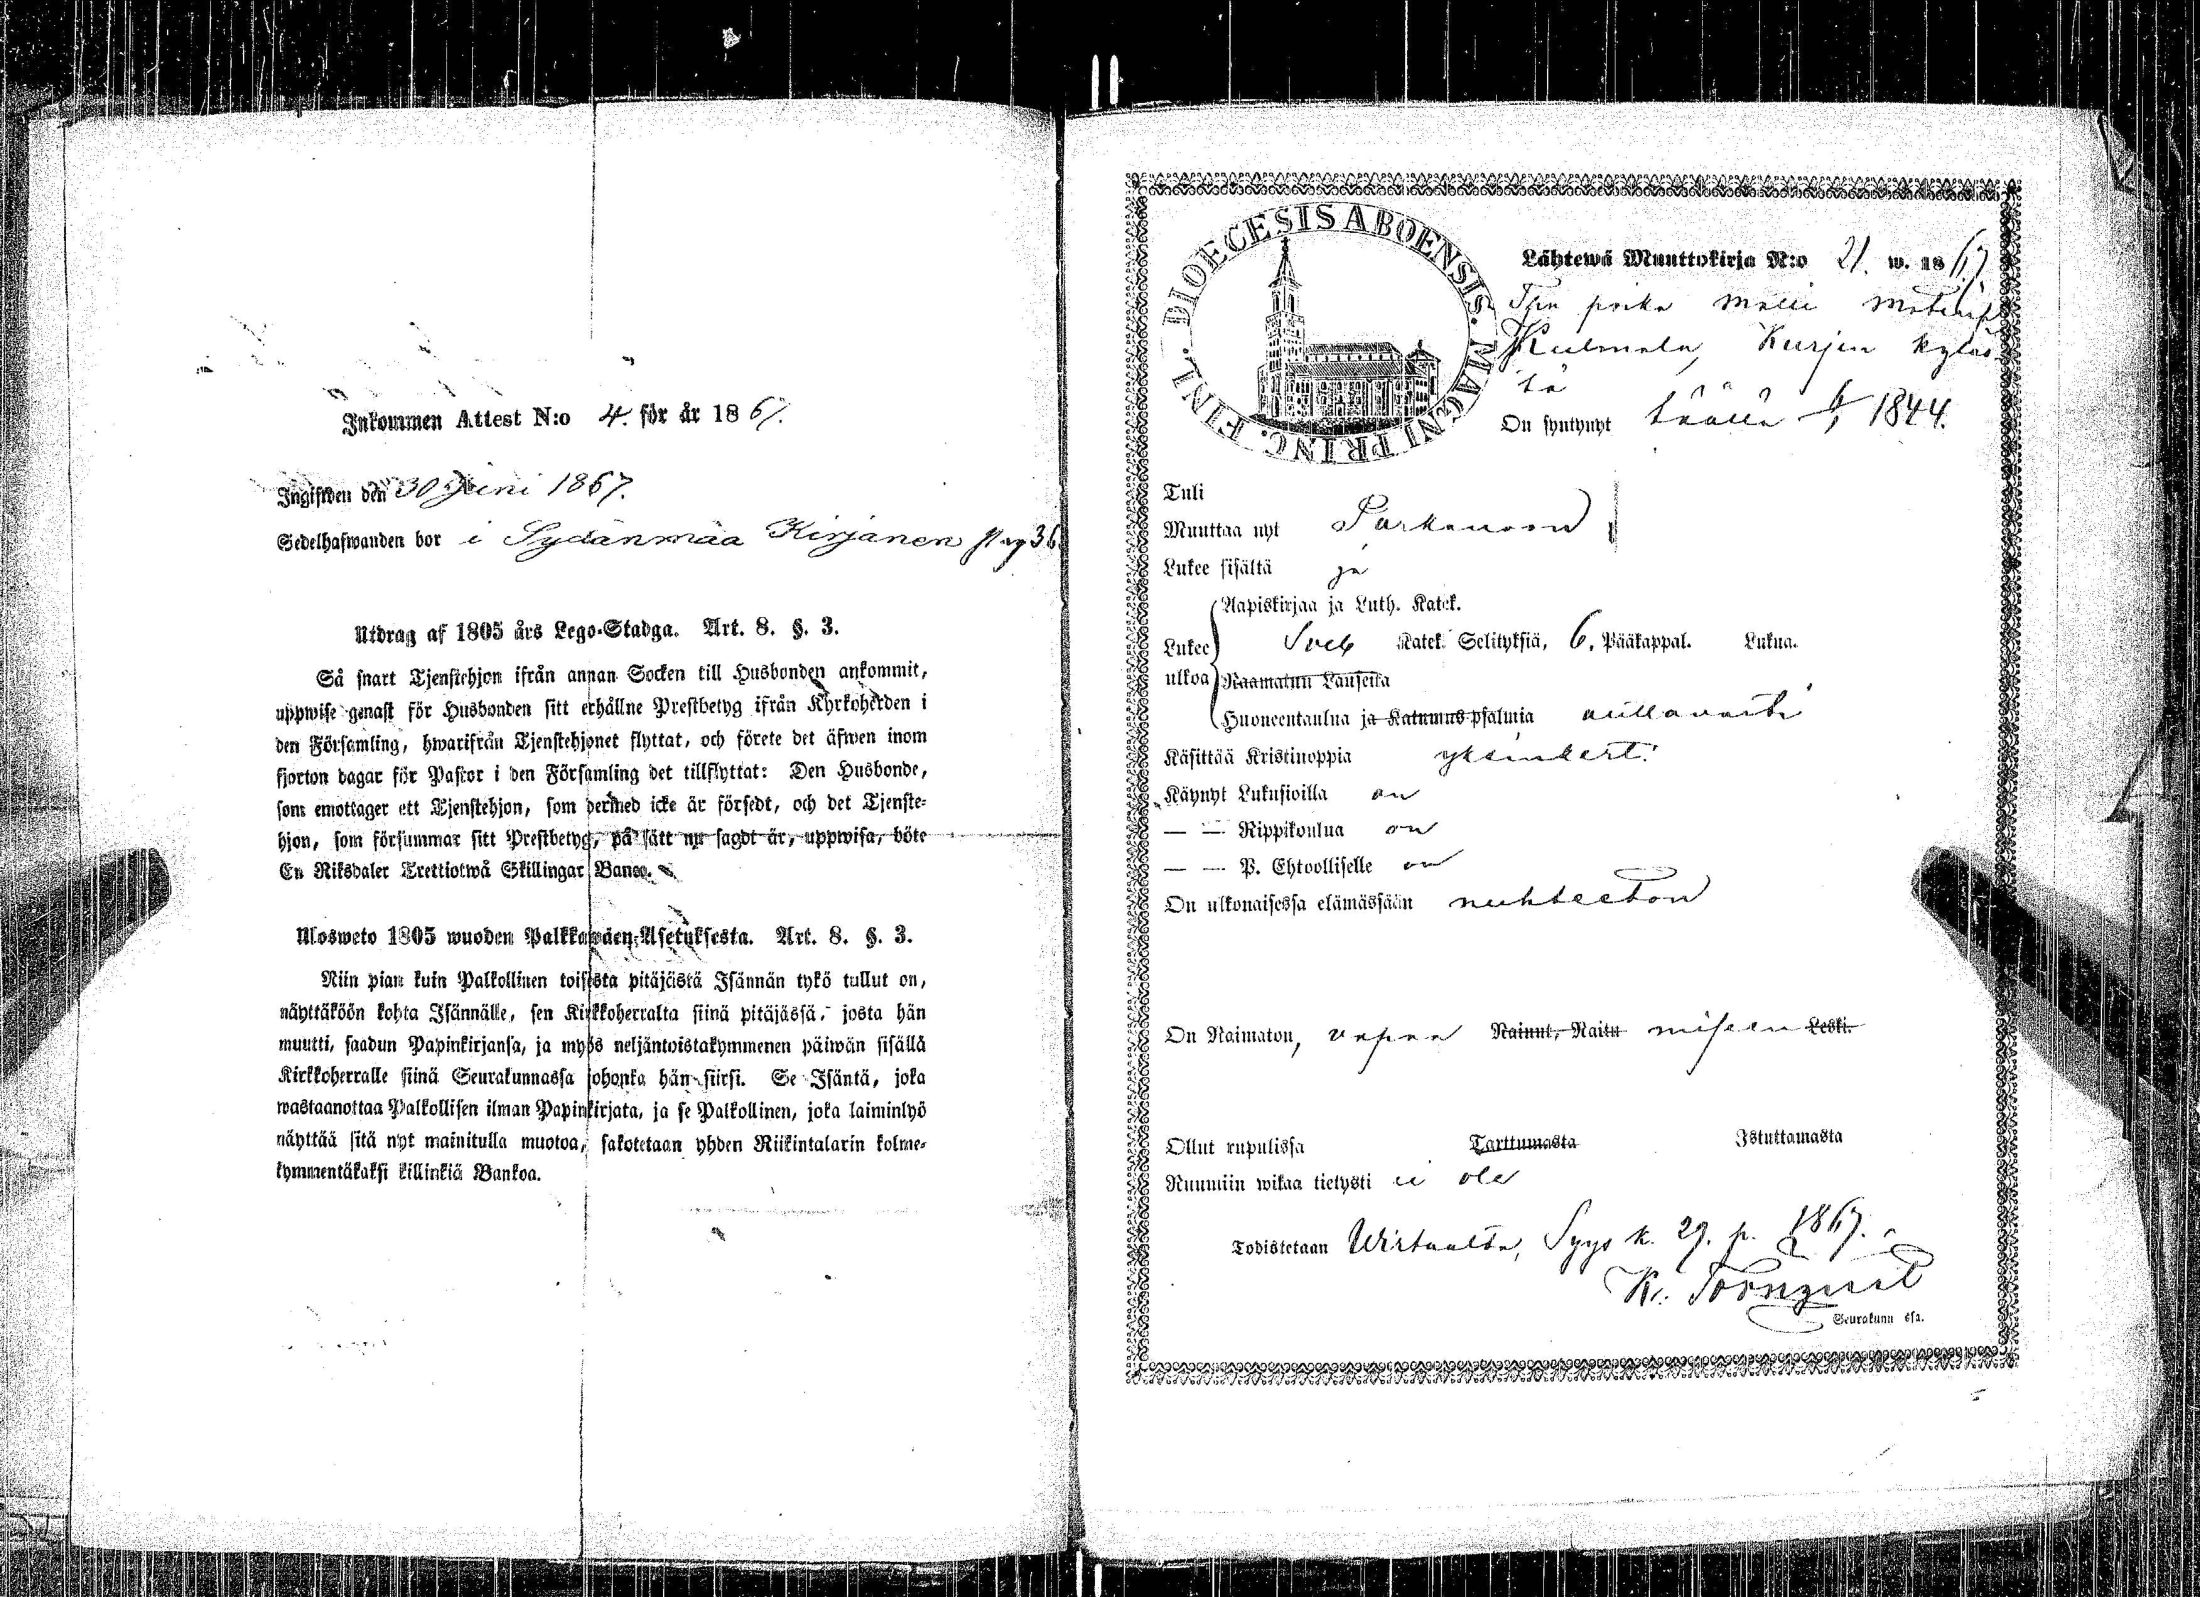 Inkommen Attest N:o 4. för år 1867.
Ingifwen den 30 Juni 1867.
Sedelhafwanden bor i Sydänmaa Kirjanen pag 36
Utdrag af 1805 års Lego-Stadga. Art. 8. §. 3.
Så snart Tjenstehjon ifrån annan Socken till Husbonden ankommit,
uppwise genast för Husbonden sitt erhållne Prestbetyg ifrån Kyrkoherden i
den Församling, hwarifrån Tjenstehjonet flyttat, och förete det äfwen inom
fjorton dagar för Pastor i den Församling det tillflyttat: Den Husbonde,
som emottager ett Tjenstehjon, som dermed icke är försedt, och det Tjenste-
hjon, som försummar sitt Prestbetyg, på sätt nu sagdt är, uppwisa, böte
En Riksdaler Trettiotwå Skillingar Banco.
Ulosweto 1805 wuoden Palkkawäen-Asetuksesta. Art. 8. §. 3.
Niin pian kuin Palkollinen toisesta pitäjästä Isännän tykö tullut on,
näyttäköön kohta Isännälle, sen Kirkkoherralta siinä pitäjässä, josta hän
muutti, saadun Papinkirjansa, ja myös neljäntoistakymmenen päiwän sisällä
Kirkkoherralle siinä Seurakunnassa johonka hän siirsi. Se Isäntä, joka
wastaanottaa Palkollisen ilman Papinkirjata, ja se Palkollinen, joka laiminlyö
näyttää sitä nyt mainitulla muotoa, sakotetaan yhden Riikintalarin kolme-
kymmentäkaksi killinkiä Bankoa.
DIOECESIS ABOENSIS. MAGNI PRINC. FINL.
Lähtewä Muuttokirja N:o 21. w. 1867
poika Matti
Kulmala, Kurjen kyläs-
tä
On syntynyt täällä 1844.
Tuli
Muuttaa nyt Parkanoon
Lukee sisältä ja
Aapiskirjaa ja Luth. Katek.
Lukee Sveb Katek. Selityksiä, 6. Pääkappal. Lukua.
ulkoa Raamatun Lauseita
Huoneentaulua ja Katumus psalmia auttavasti
Käsittää Kristinoppia yksinkert.
Käynyt Lukusioilla on
— — Rippikoulua on
— — P. Ehtoolliselle on
On ulkonaisessa elämässään nuhteeton
On Naimaton, vapaa Nainut, Naitu naiseen Leski.
Ollut rupulissa Tarttumasta Istuttamasta
Ruumiin wikaa tietysti ei ole
Todistetaan Wirtaalla, Syys k. 29. p. 1867.
K. Törnqvist
Seurakunn esa.